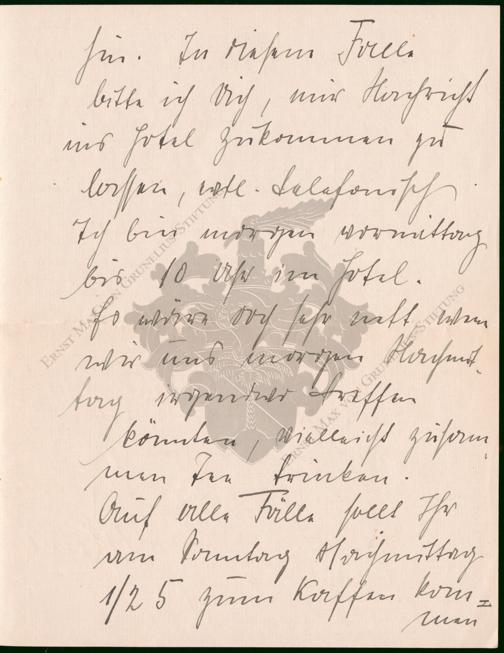 hin. In diesem Falle
bitte ich Dich, mir Nachricht
ins Hotel zukommen zu
lassen, evtl. telefonisch.
Ich bin morgen vormittag
bis 10 Uhr im Hotel.
Es wäre doch sehr nett, wenn
wir uns morgen Nachmit-
tag irgendwo treffen
könnten, vielleicht zusam-
men Tee trinken.
Auf alle Fälle sollt Ihr
am Sonntag Nachmittag
1/2 5 zum Kaffee kom=
men
ERNST MAX VON GRUNELIUS-STIFTUNG
ERNST MAX VON GRUNELIUS-STIFTUNG